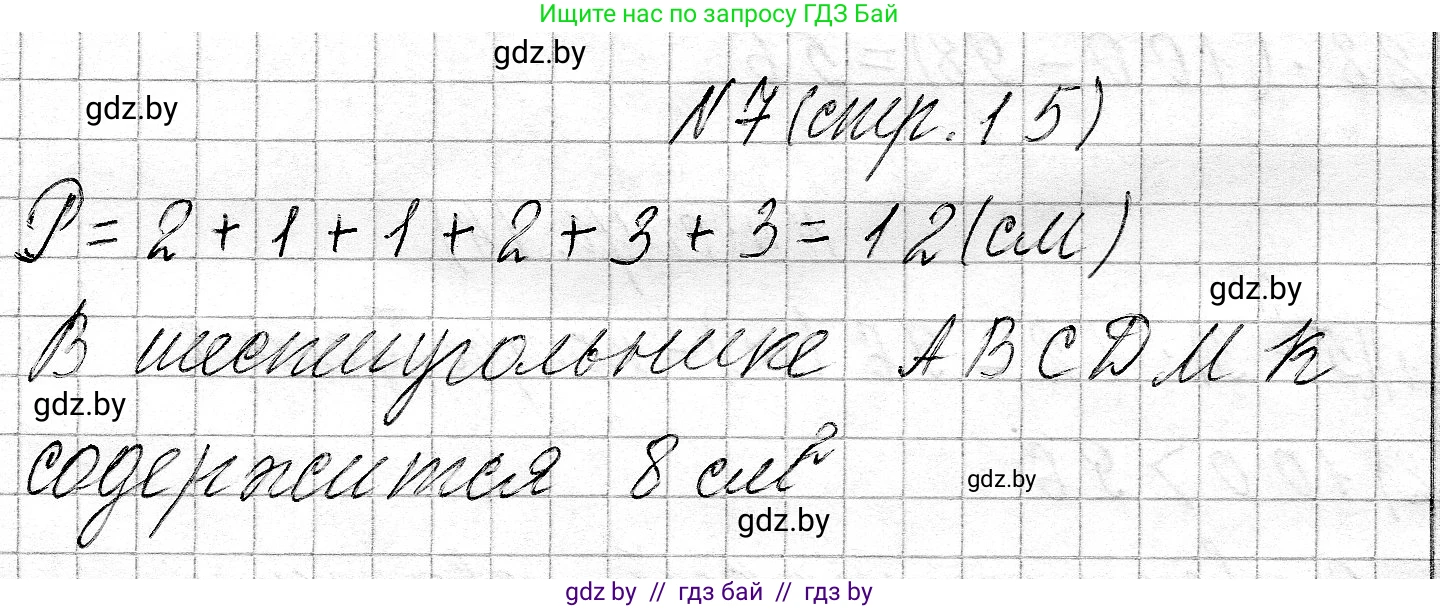 Ищите нас по запросу ГДЗ Бай
gdz.by
gdz.by
N7(стр.15)
P = 2 + 1 + 1 + 2 + 3 + 3 = 12(см)
gdz.by
В шестиугольнике ABCDMK
gdz.by
содержится 8 см²
gdz.by
gdz.by
gdz by // гдз бай // гдз by